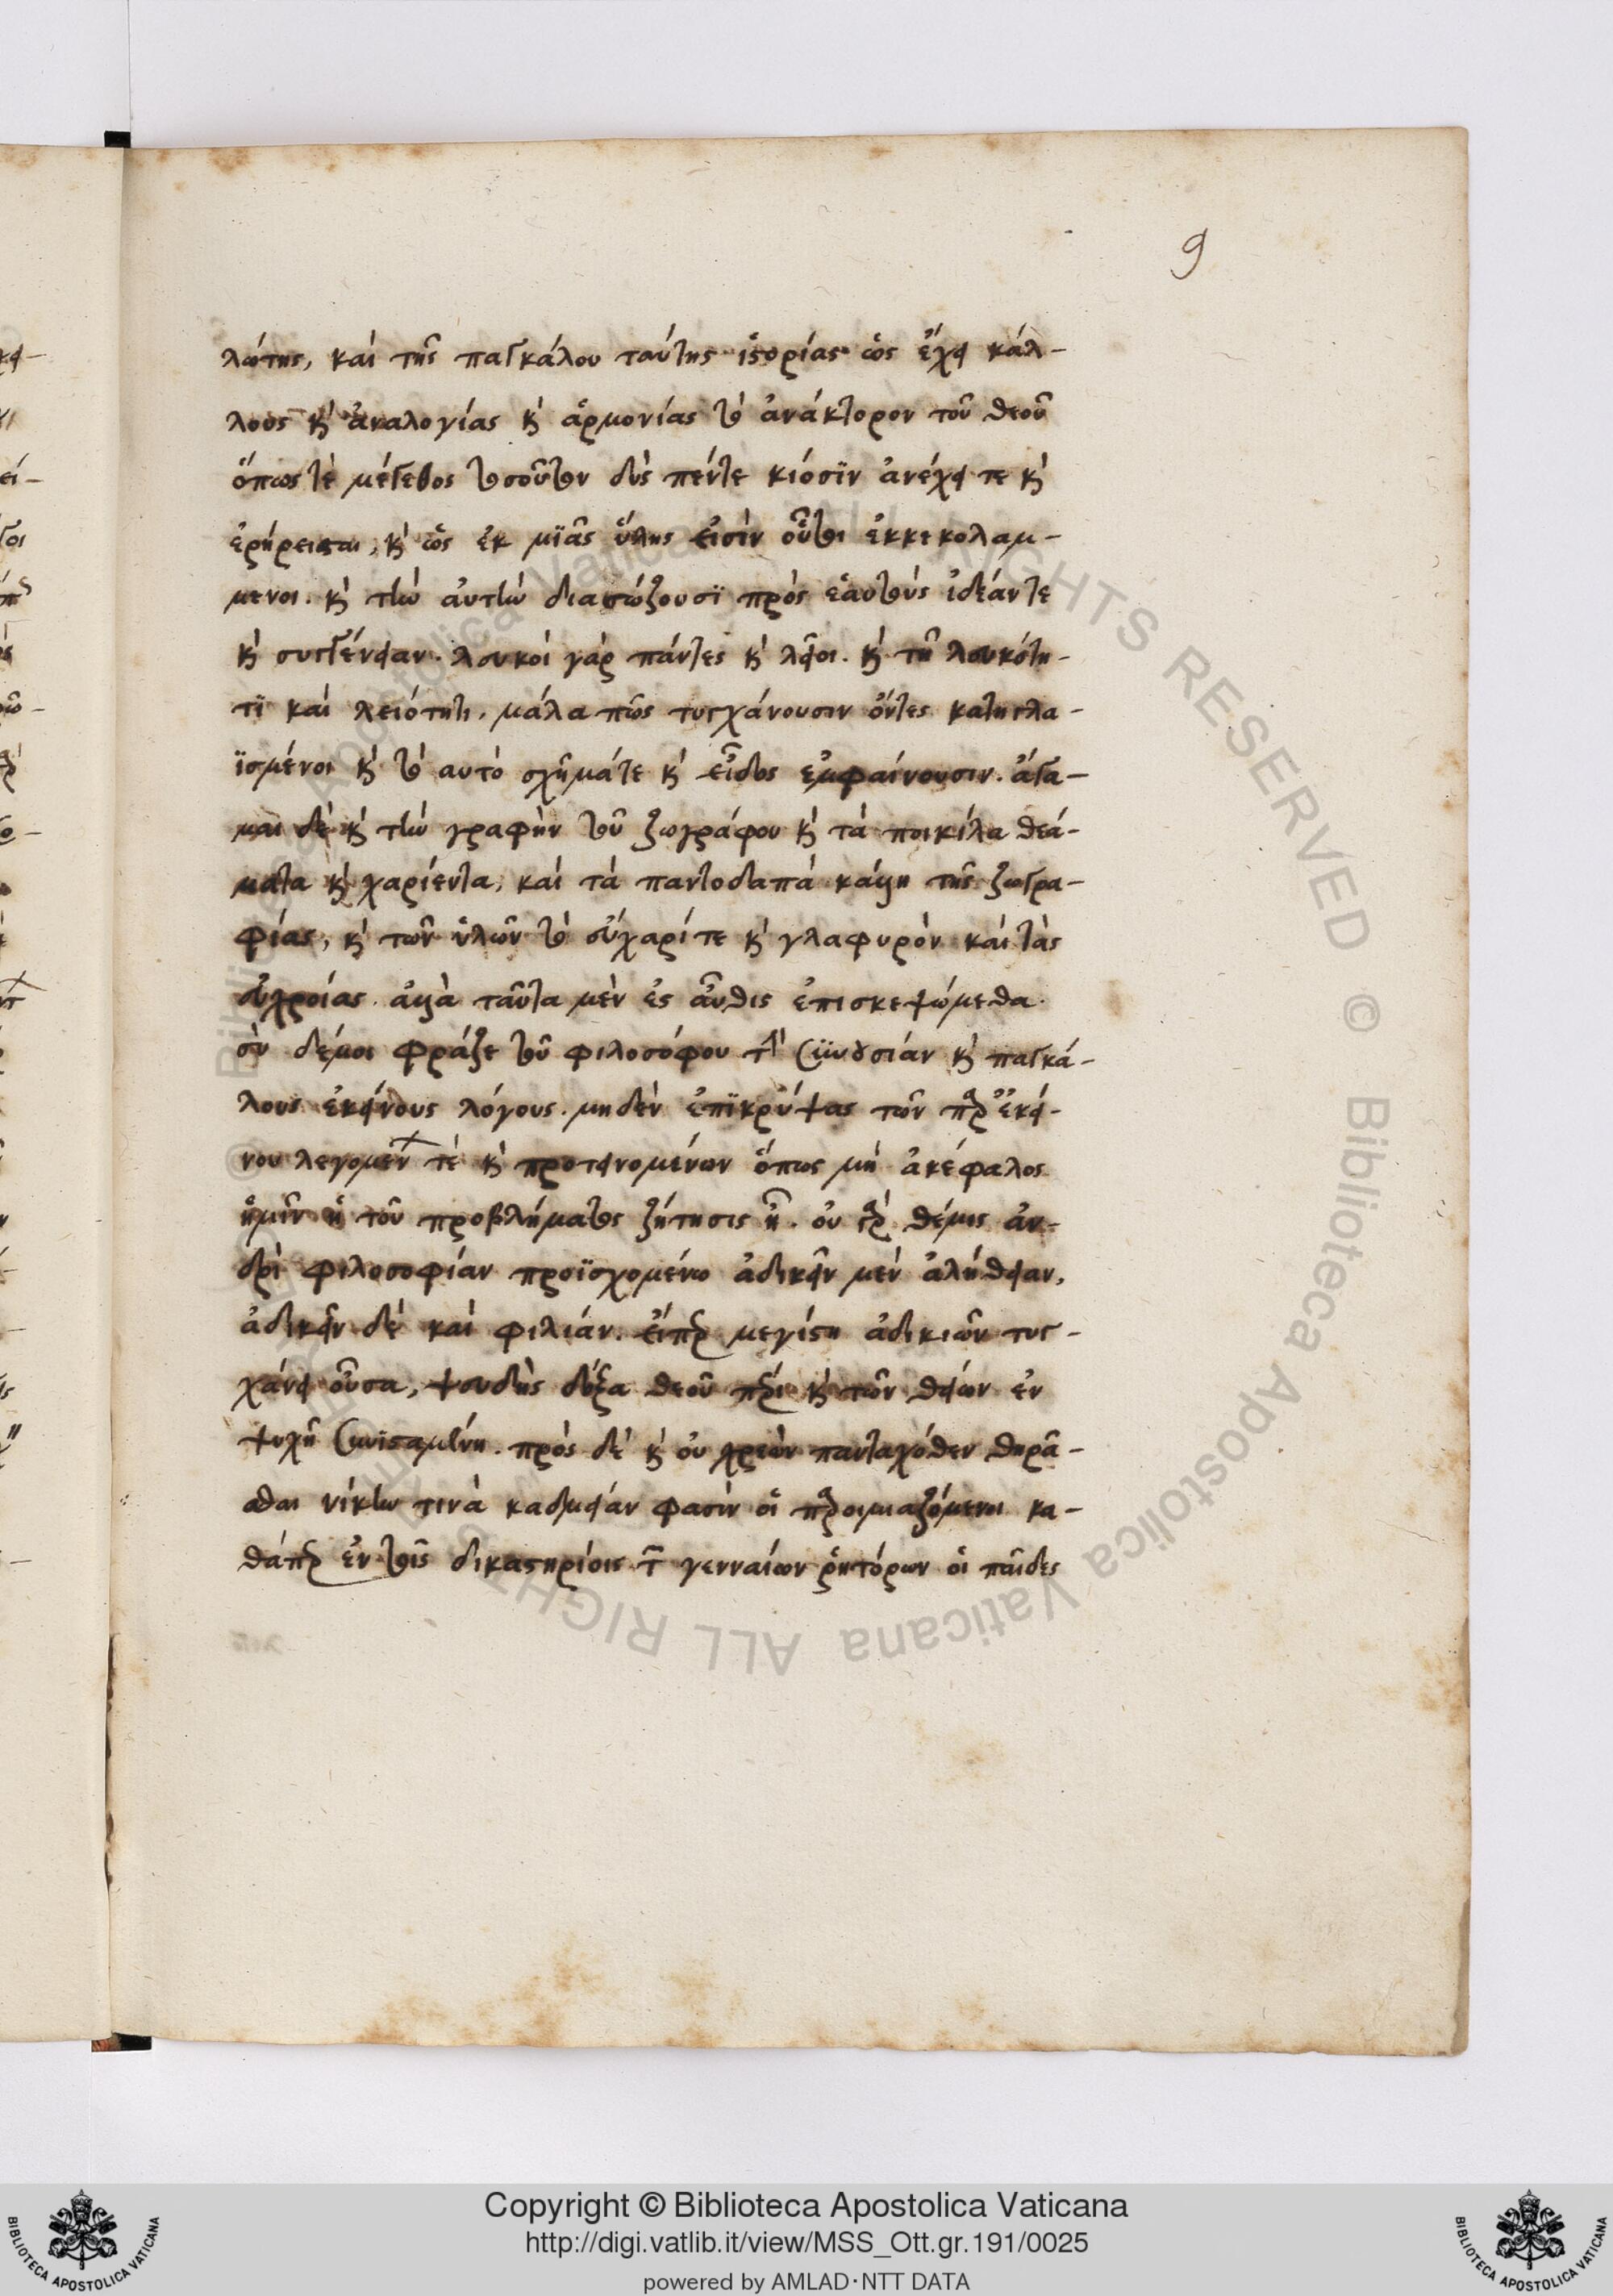 9
λώτης, καὶ τῆς παγκάλου ταύτης ἱστορίας ὡς ἔχει κάλ-
λους κ̀ ἀναλογίας κ̀ ἁρμονίας τὸ ἀνάκτορον τοῦ θεοῦ
ὅπως τὲ μέγεθος τοσοῦτον δυσὶ πέντε κιόσϊν ἀνέχει τε κ̀
ἐρήρεισται, κ̀ ὡς ἐκ μϊᾶς ὕλης εἰσὶν οὗτοι ἐκκεκολαμ-
μενοι. κ̀ τὴν ἀυτὴν διασώζουσϊ πρὸς ἑαυτοὺς ἰδέάν τε
κ̀ συγγένειαν. λευκοὶ γὰρ πάντες κ̀ λεῖοι. κ̀ τῆ λευκότη-
τϊ καὶ λειότητι. μάλα πῶς τυγχάνουσιν ὄντες κατηγλα-
ϊσμένοι κ̀ τὸ αυτὸ σχῆμάτε κ̀ εἶδος εμφαίνουσιν. ἄγα-
μαι δὲ κ̀ τὴν γραφὴν τοῦ ζωγράφου κ̀ τὰ ποικίλα θεά-
ματα κ̀ χαρίεντα, καὶ τὰ παντοδαπὰ κάλλη τῆς ζωγρα-
φίας, κ̀ τῶν ὑλῶν τὸ εὔχαρί τε κ̀ γλαφυρὸν καὶ τὰς
εὐχροίας. ἀλλὰ ταῦτα μὲν ἐς αὖθις ἐπισκεψώμεθα.
σὺ δέμοι φράζε τοῦ φιλοσόφου τὴν συνουσίαν κ̀ παγκά-
λους ἐκείνους λόγους. μηδὲν ἐπϊκρύψας τῶν παρ ἐκεί-
νου λεγομένων τὲ κ̀ προτεινομένων ὅπως μὴ ἀκέφαλος
ἡμῖν ἡ τοῦ προβλήματος ζήτησις ἦ. οὐ γὰρ θέμις ἀν-
δρὶ φιλοσοφίαν προϊσχομένω ἀδικεῖν μὲν ἀλήθειαν,
ἀδικεῖν δὲ καὶ φιλίαν. εἴπερ μεγίστη ἀδικιῶν τυγ-
χάνει οὖσα, ψευδὴς δόξα θεοῦ πέρι κ̀ τῶν θείων ἐν
ψυχῆ συνϊσταμένη. πρὸς δὲ κ̀ οὐ χρεὼν πανταχόθεν θηρᾶ-
σθαι νίκην τινὰ καδμείαν φασὶν οἱ προοιμιαζόμενοι κα-
θάπερ ἐν τοῖς δικαστηρίοις τῶν γενναίων ῥητόρων οἱ παῖδες
Copyright © Biblioteca Apostolica Vaticana
http://digi.vatlib.it/view/MSS_Ott.gr.191/0025
powered by AMLAD·NTT DATA